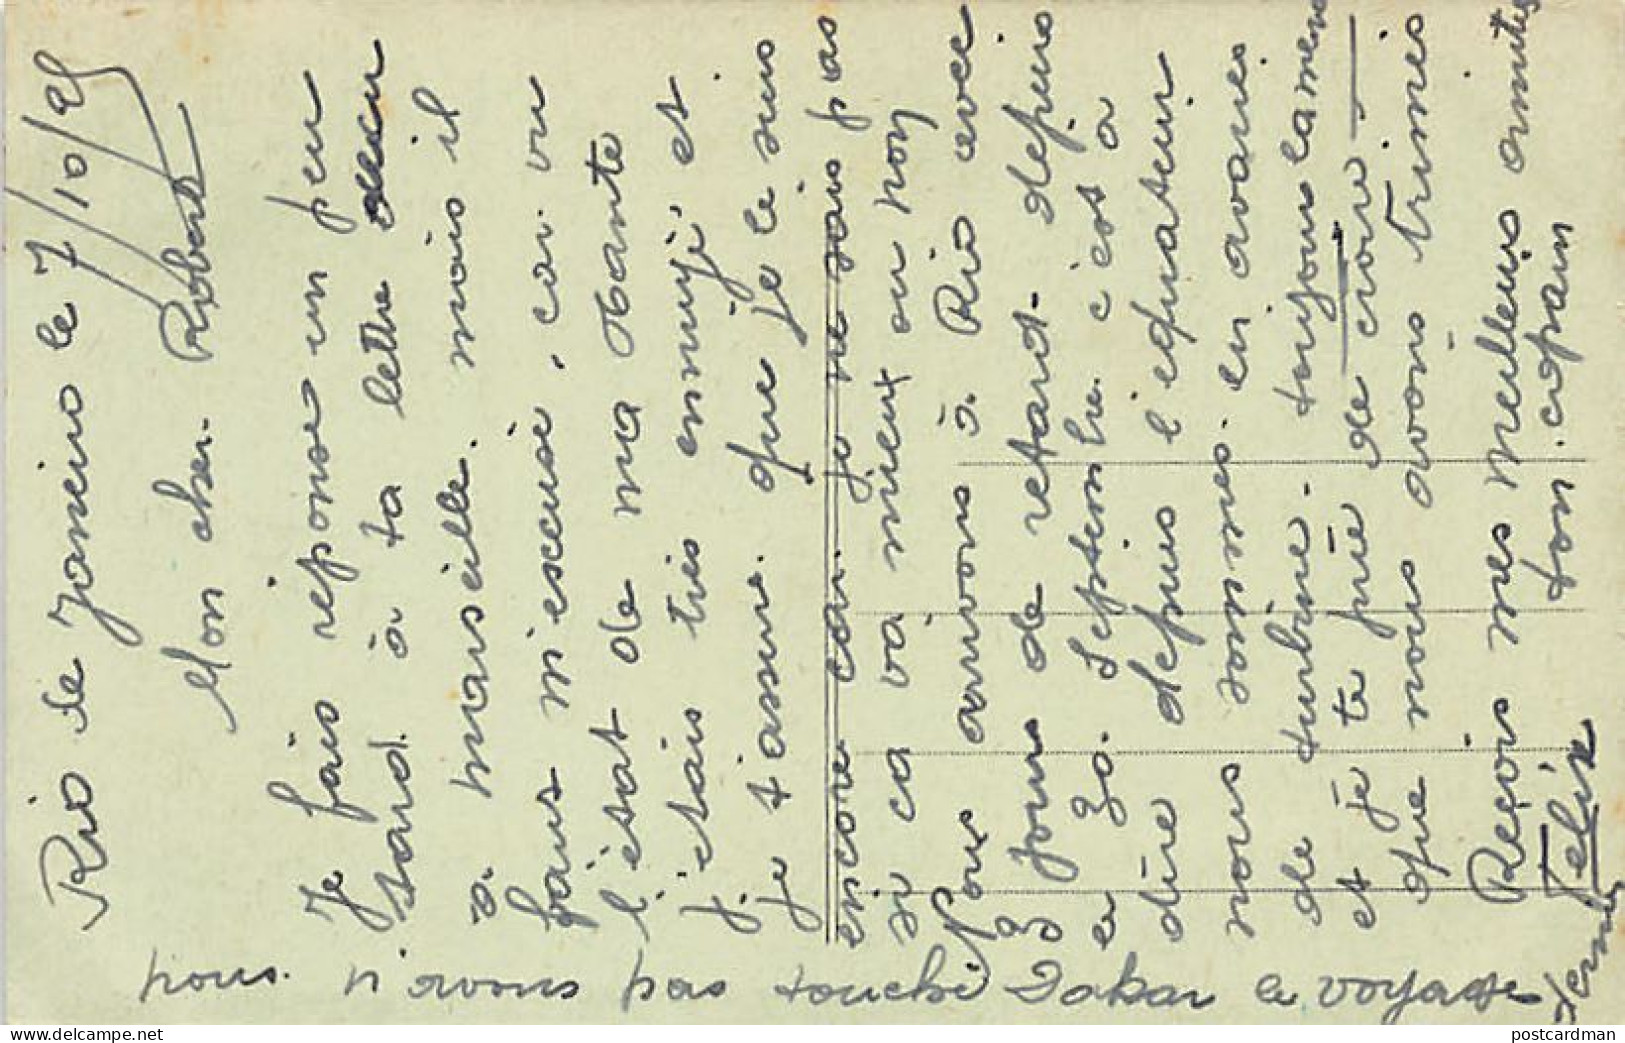 Rio de Janeiro le 7/10/25
Mon cher Robert
Je fais réponse un peu
tard à ta lettre
à marseille. mais il
faut m'escusé, car vu
l'état de ma
j'étais tres ennuyé, et
je t'assure que je le suis
encore car je ne sais pas
si ca va mieux ou non
Nous arrivons à Rio avec
3 jours de retard depuis
e 30. Septembre c'est à
dire depuis l'equateur
nous sommes en avaries
de turbine. toujours la meme
et je te prie de croire
que nous avons trimés
Reçois mes meilleurs amities
ton copain
Felix
nous n'avons pas touché Dakar le voyage
dernier
postcardman